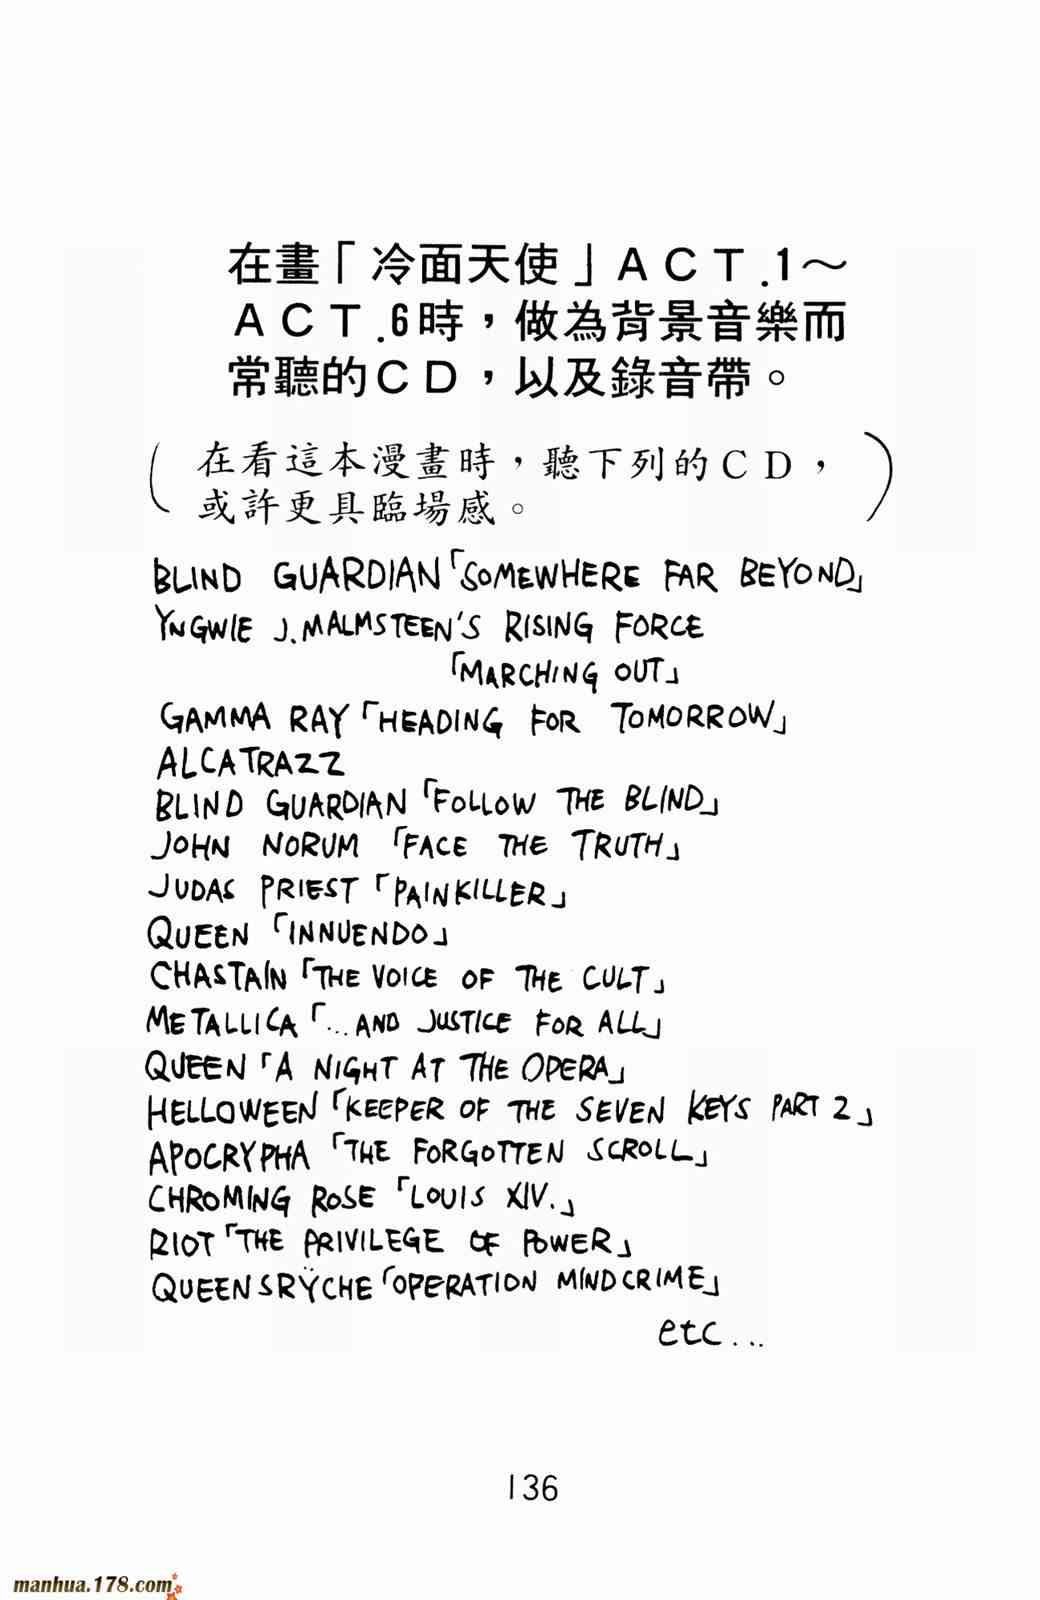 在畫「冷面天使」ACT.1～
ACT.6時，做為背景音樂而
常聽的CD，以及錄音帶。
(在看這本漫畫時，聽下列的CD，
或許更具臨場感。)
BLIND GUARDIAN「SOMEWHERE FAR BEYOND」
YNGWIE J.MALMSTEEN'S RISING FORCE
「MARCHING OUT」
GAMMA RAY「HEADING FOR TOMORROW」
ALCATRAZZ
BLIND GUARDIAN「FOLLOW THE BLIND」
JOHN NORUM「FACE THE TRUTH」
JUDAS PRIEST「PAINKILLER」
QUEEN「INNUENDO」
CHASTAIN「THE VOICE OF THE CULT」
METALLICA「...AND JUSTICE FOR ALL」
QUEEN「A NIGHT AT THE OPERA」
HELLOWEEN「KEEPER OF THE SEVEN KEYS PART 2」
APOCRYPHA「THE FORGOTTEN SCROLL」
CHROMING ROSE「LOUIS XIV.」
RIOT「THE PRIVILEGE OF POWER」
QUEENSRŸCHE「OPERATION MINDCRIME」
etc...
136
manhua.178.com